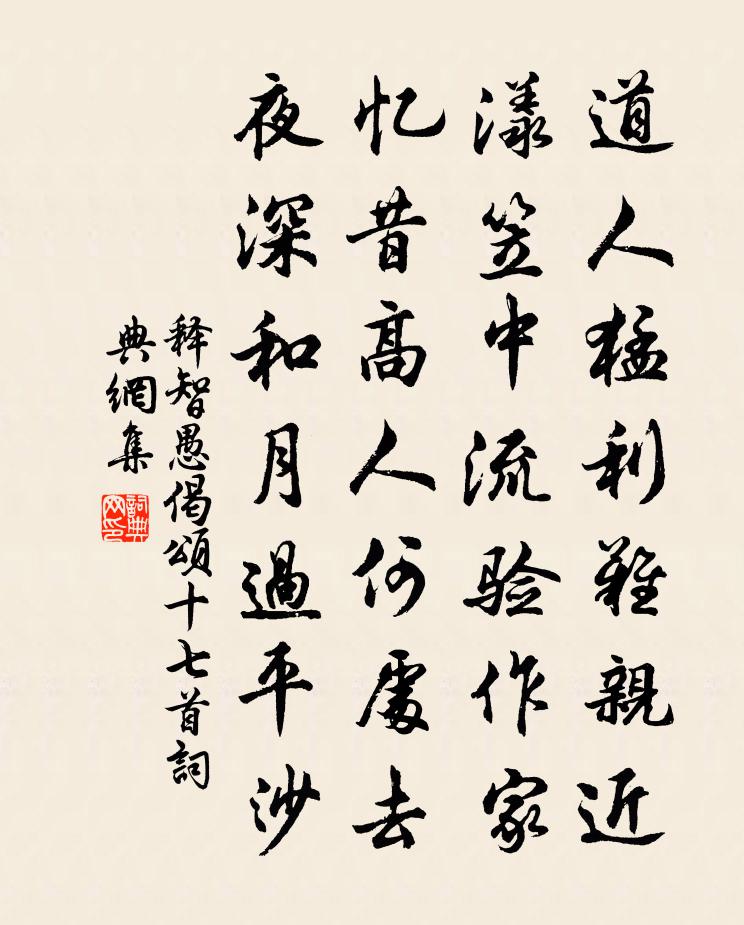 道人猛利難親近
漾笠中流验作家
忆昔高人何處去
夜深和月過平沙
释智愚偈頌十七首詞
典網集
詞典網印